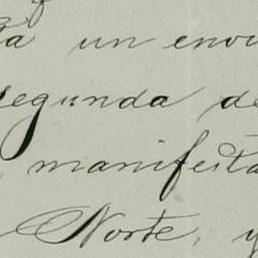 a un envi
segunda de
manifesta
Norte, y